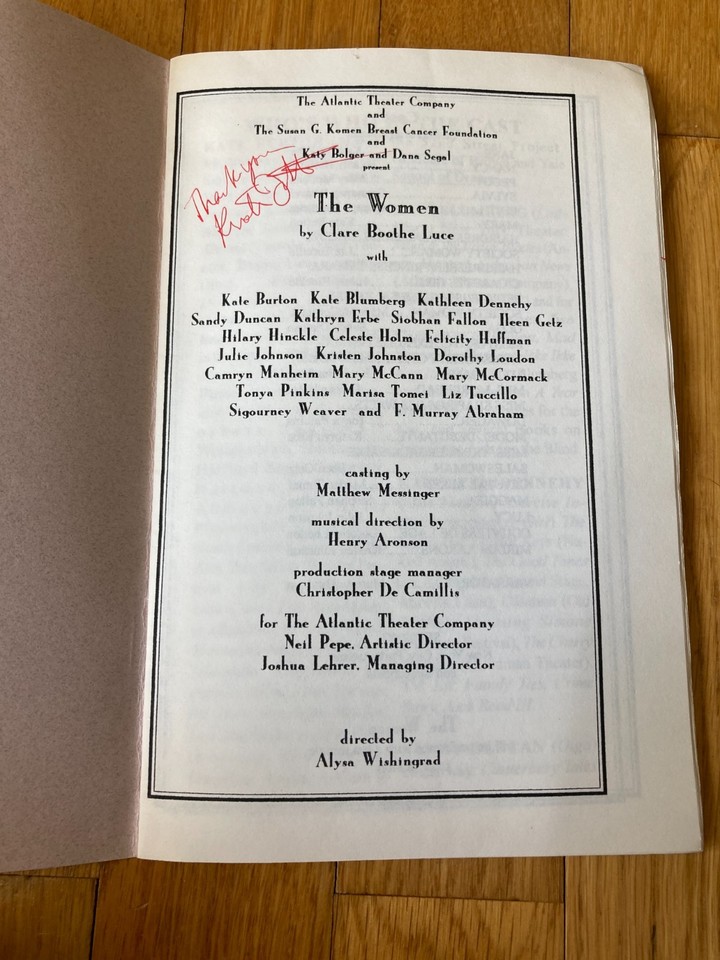 The Atlantic Theater Company
and
The Susan G. Komen Breast Cancer Foundation
and
Katy Bolger and Dana Segal
present
Thank you
The Women
by Clare Boothe Luce
with
Kate Burton Kate Blumberg Kathleen Dennehy
Sandy Duncan Kathryn Erbe Siobhan Fallon Ileen Getz
Hilary Hinckle Celeste Holm Felicity Huffman
Julie Johnson Kristen Johnston Dorothy Loudon
Camryn Manheim Mary McCann Mary McCormack
Tonya Pinkins Marisa Tomei Liz Tuccillo
Sigourney Weaver and F. Murray Abraham
casting by
Matthew Messinger
musical direction by
Henry Aronson
production stage manager
Christopher De Camillis
for The Atlantic Theater Company
Neil Pepe, Artistic Director
Joshua Lehrer, Managing Director
directed by
Alysa Wishingrad